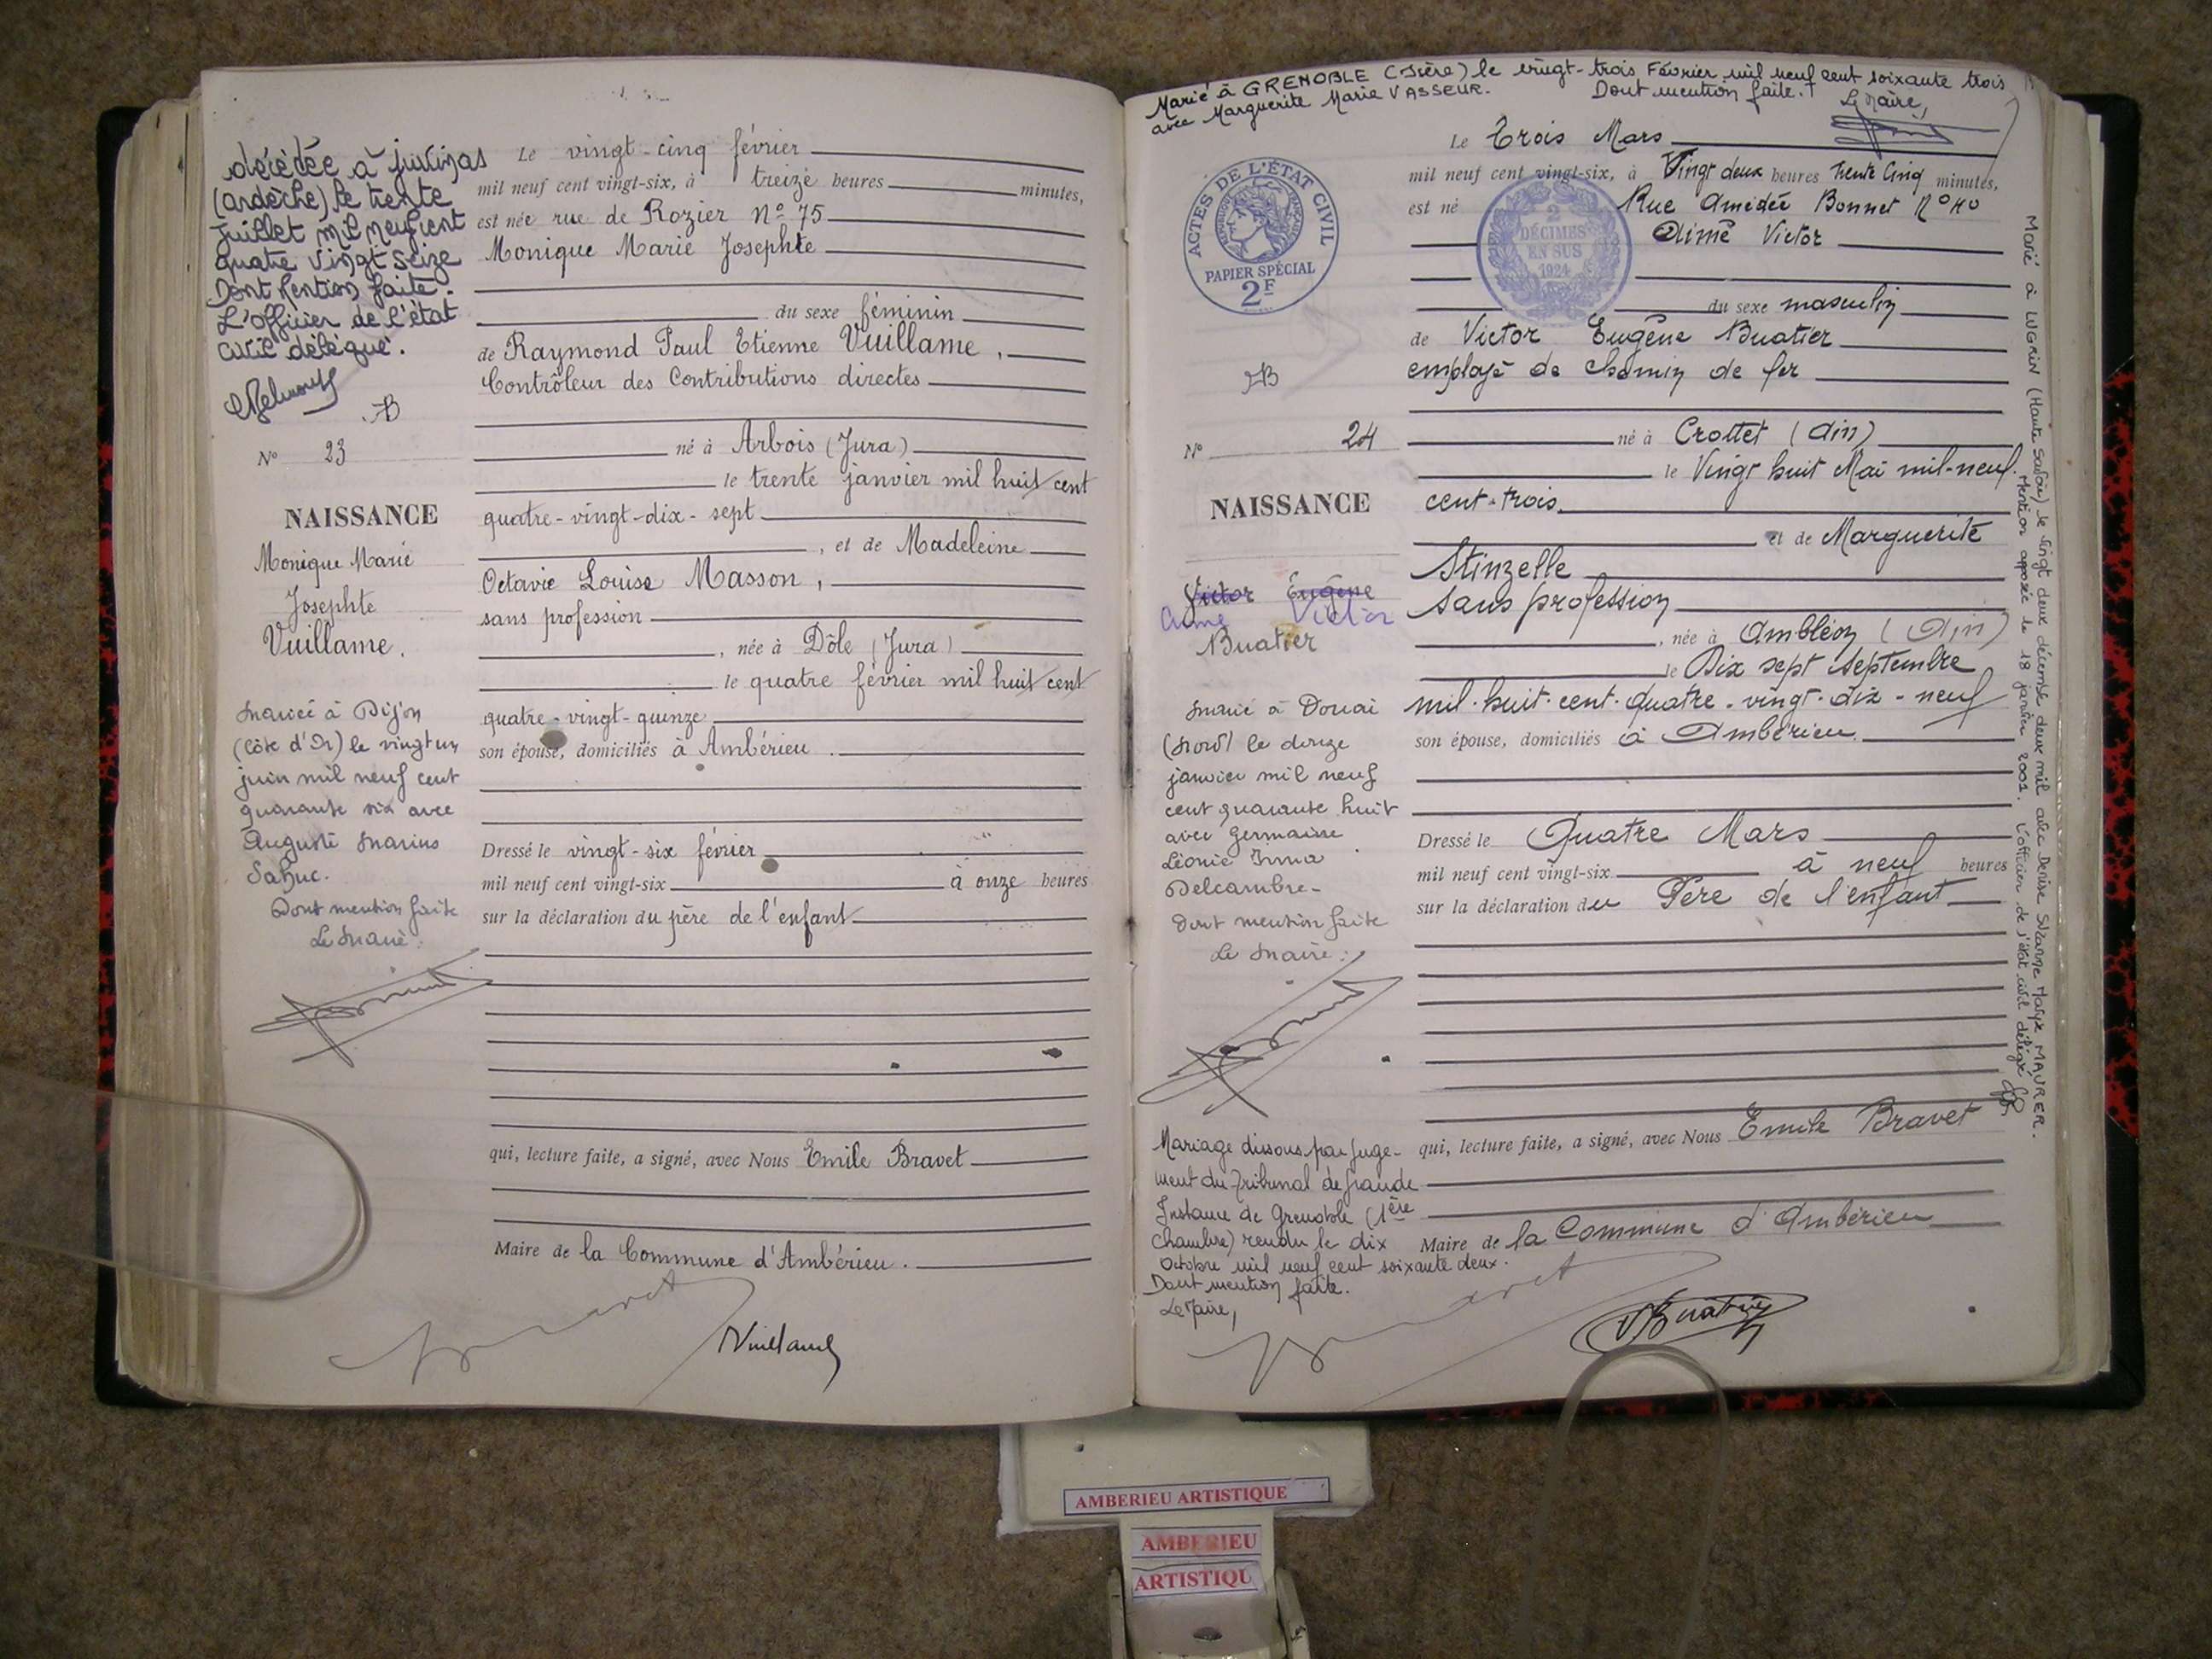 décédée à Juvinas
(Ardèche) le trente
Juillet mil neuf cent
quatre vingt seize
Dont Mention faite.
L'officier de l'état
civil délégué.
N° 23
NAISSANCE
Monique Marie
Josephte
Vuillame.
Mariée à Dijon
(Côte d'Or) le vingt un
juin mil neuf cent
quarante six avec
Auguste Marius
Sahuc.
Dont mention faite
Le Maire:
Le vingt-cinq février
mil neuf cent vingt-six, à treize heures minutes,
est née rue de Rozier N° 75
Monique Marie Josephte
du sexe féminin
de Raymond Paul Etienne Vuillame,
Contrôleur des Contributions directes
né à Arbois (Jura)
le trente janvier mil huit cent
quatre-vingt-dix-sept
, et de Madeleine
Octavie Louise Masson,
sans profession
, née à Dôle (Jura)
le quatre février mil huit cent
quatre-vingt-quinze
son épouse, domiciliés à Ambérieu.
Dressé le vingt-six février
mil neuf cent vingt-six à onze heures
sur la déclaration du père de l'enfant
qui, lecture faite, a signé, avec Nous Emile Bravet
Maire de la Commune d'Ambérieu.
Vuillame
Marié à GRENOBLE (Isère) le vingt-trois Février mil neuf cent soixante trois
avec Marguerite Marie VASSEUR. Dont mention faite.
Le Maire,
ACTES DE L'ÉTAT CIVIL
PAPIER SPÉCIAL
2F
2
DÉCIMES
EN SUS
1924
N° 24
NAISSANCE
Victor Eugène
Aimé Victor
Buatier
Marié à Douai
(Nord) le douze
janvier mil neuf
cent quarante huit
avec Germaine
Léonie Irma
Delcambre-
Dont mention faite
Le Maire:
Mariage dissous par juge-
ment du Tribunal de Grande
Instance de Grenoble (1ère
Chambre) rendu le dix
Octobre mil neuf cent soixante deux.
Dont mention faite.
Le Maire,
Le Trois Mars
mil neuf cent vingt-six, à Vingt deux heures trente cinq minutes,
est né Rue Amédée Bonnet N° 40
Aimé Victor
du sexe masculin
de Victor Eugène Buatier
employé de chemin de fer
né à Crottet (Ain)
le Vingt huit Mai mil-neuf
cent-trois
et de Marguerite
Stinzelle
Sans profession
, née à Ambléon (Ain)
le Dix sept Septembre
mil-huit-cent-quatre-vingt-dix-neuf
son épouse, domiciliés à Ambérieu.
Dressé le Quatre Mars
mil neuf cent vingt-six à neuf heures
sur la déclaration du Père de l'enfant
qui, lecture faite, a signé, avec Nous Emile Bravet
Maire de la Commune d'Ambérieu
VBuatier
Marié à LUGRIN (Haute Savoie) le vingt deux décembre deux mil avec Denise Suzanne MAURER.
Mention apposée le 18 janvier 2001. L'officier de l'état civil délégué
AMBERIEU ARTISTIQUE
AMBERIEU
ARTISTIQU